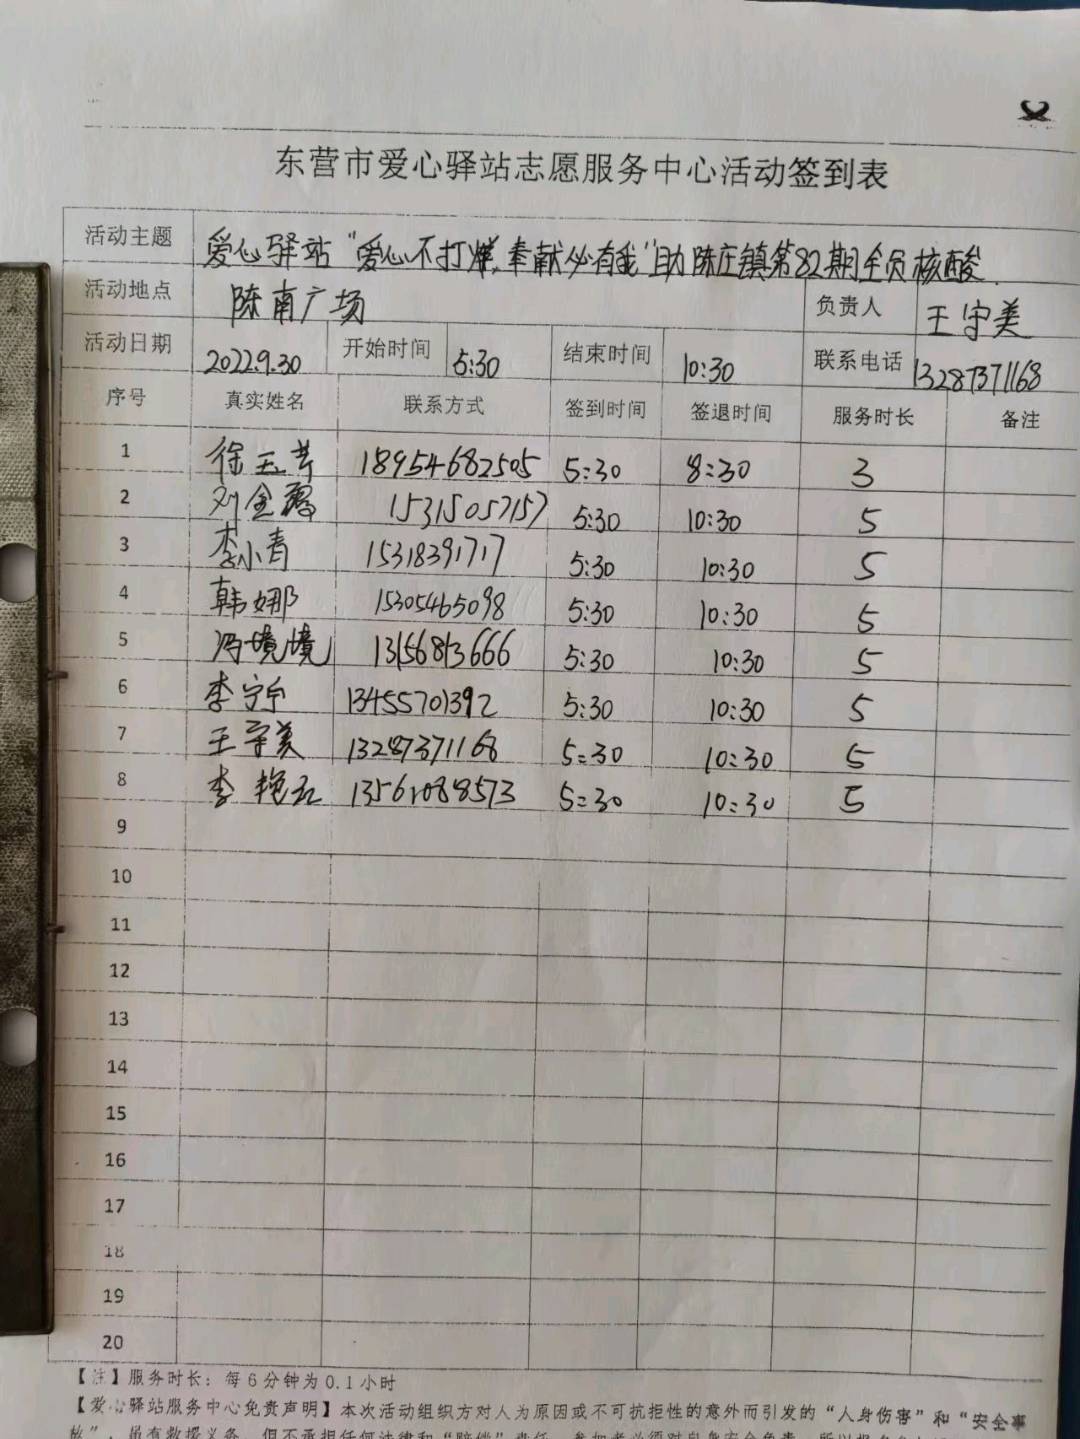 东营市爱心驿站志愿服务中心活动签到表
活动主题 爱心驿站“爱心不打烊，奉献必有我”助陈庄镇第82期全员核酸.
活动地点 陈南广场 负责人 王守美
活动日期 2022.9.30 开始时间 5:30 结束时间 10:30 联系电话 13287371168
序号 真实姓名 联系方式 签到时间 签退时间 服务时长 备注
1 徐玉芹 18954682505 5:30 8:30 3
2 刘金霞 15315057157 5:30 10:30 5
3 李小青 15318391717 5:30 10:30 5
4 韩娜 15305465098 5:30 10:30 5
5 冯境境 13156813666 5:30 10:30 5
6 李宁宁 13455701392 5:30 10:30 5
7 王守美 13287371168 5:30 10:30 5
8 李艳红 13561088573 5:30 10:30 5
9
10
11
12
13
14
15
16
17
18
19
20
【注】服务时长：每6分钟为0.1小时
【爱心驿站服务中心免责声明】本次活动组织方对人为原因或不可抗拒性的意外而引发的“人身伤害”和“安全事
故”，虽有救援义务，但不承担任何法律和“赔偿”责任，参加者必须对自身安全负责，所以报名参加